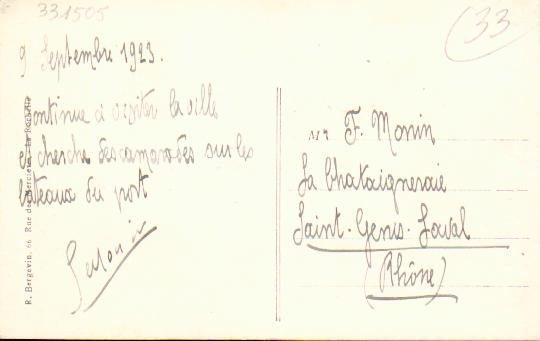 331505
33
9 Septembre 1923.
Continue à visiter la ville
et cherche des camarades sur les
bateaux du port
Mr F. Monin
La Chataigneraie
Saint-Genis-Laval
(Rhône)
R. Bergevin, 66, Rue des Merciers - La Rochelle